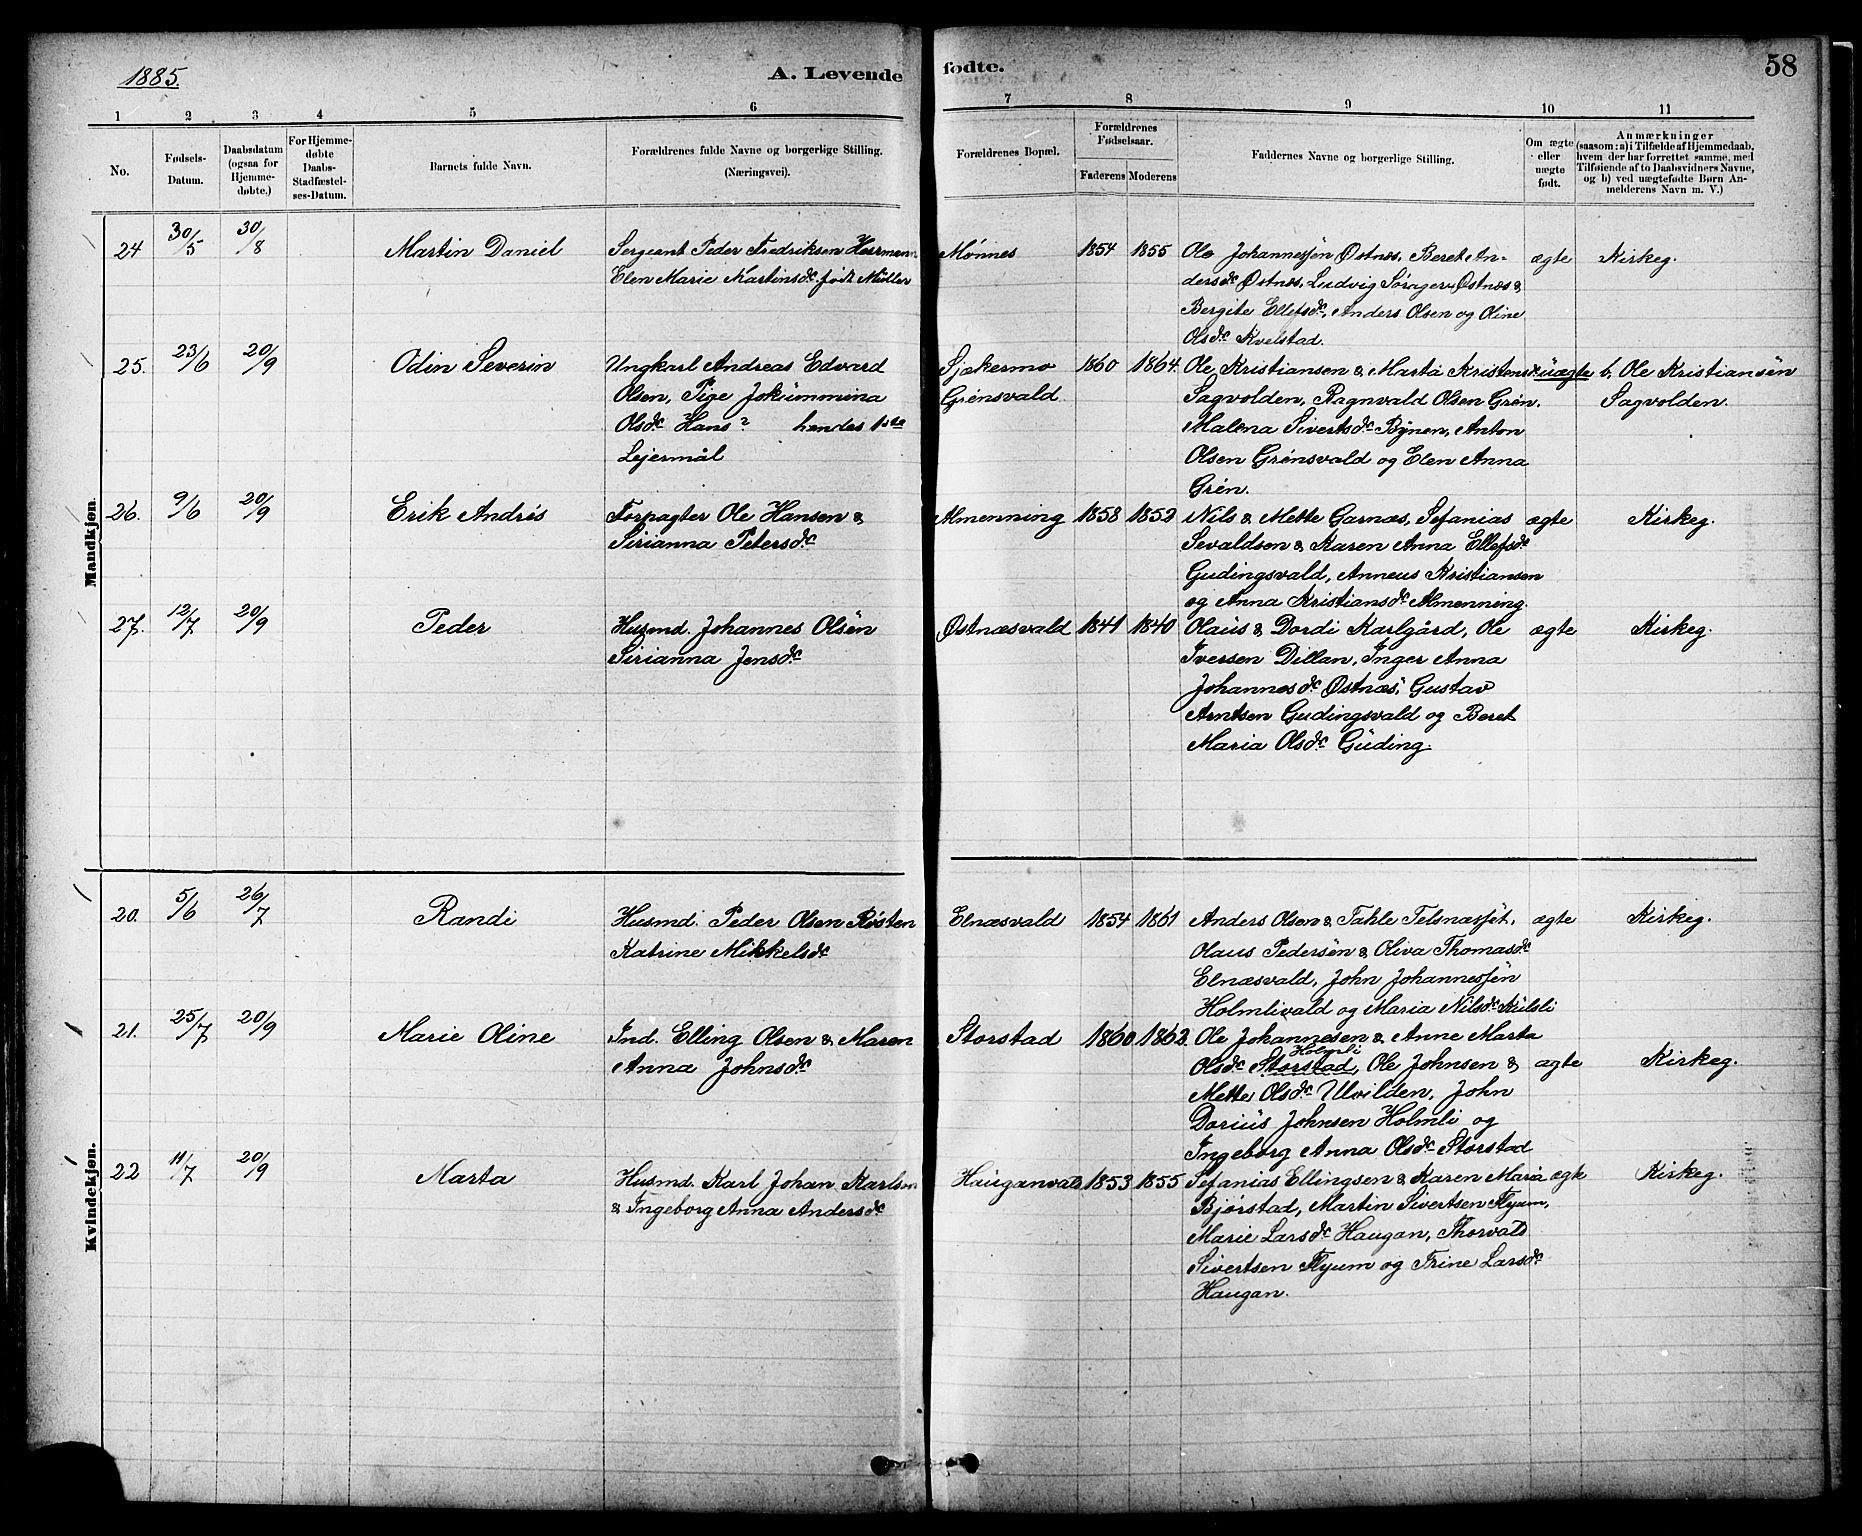 1885.
A. Levende fødte.
58
1 2 3 4 5 6 7 8 9 10 11
No.
Fødsels-Datum.
Daabsdatum (ogsaa for Hjemme-døbte.)
For Hjemme-døbte Daabs-Stadfæstel-ses-Datum.
Barnets fulde Navn.
Forældrenes fulde Navne og borgerlige Stilling. (Næringsvei).
Forældrenes Bopæl.
Forældrenes Fødselsaar.
Faderens Moderens
Faddernes Navne og borgerlige Stilling.
Om ægte eller uægte født.
Anmærkninger (saasom: a) i Tilfælde af Hjemmedaab, hvem der har forrettet samme, med Tilføiende af to Daabsvidners Navne, og b) ved uægtefødte Børn An-melderens Navn m. V.)
Mandkjøn.
24 30/5 30/8 Martin Daniel Sergeant Peder Fredriksen Herrmann Mønnes 1854 1855 Ole Johannessen Østnes, Beret An- ægte Kirkeg.
Elen Marie Martinsdc født Müller dersdc Østnæs, Ludvig Sørager Østnæs &
Bergite Ellefsdc, Anders Olsen og Oline
Olsdc Kvelstad.
25. 23/6 20/9 Odin Severin Ungkarl Andreas Edvard Sjækermo 1860 1864 Ole Kristiansen & Marta Kristensdc uægte b, Ole Kristiansen
Olsen, Pige Jokummina Grønsvald Sagvolden, Ragnvald Olsen Grøn. Sagvolden.
Olsdc Hans? hendes 1ste Malena Sivertsdc Bynen, Anton
Lejermål Olsen Grønsvald og Elen Anna
Grøn.
26. 9/6 20/9 Erik Andrés Forpagter Ole Hansen & Almenning 1858 1852 Nils & Mette Garnæs, Sefanias ægte Kirkeg.
Sirianna Petersdc Sevaldsen & Karen Anna Ellefsdc
Gudingsvald, Anneus Kristiansen
og Anna Kristiansdc Almenning.
27. 12/7 20/9 Peder Husmd. Johannes Olsen Østnæsvald 1841 1840 Olaus & Dordi Karlgård, Ole ægte Kirkeg.
Sirianna Jensdc Iversen Dillan, Inger Anna
Johannesdc Østnæs, Gustav
Arntsen Gudingsvald og Beret
Maria Olsdc Guding.
Kvindekjøn.
20. 5/6 26/7 Randi Husmd. Peder Olsen Røsten Elnæsvald 1854 1861 Anders Olsen & Tahle ægte Kirkeg.
Katrine Mikkelsdc Olaus Pedersen & Oliva Thomasdc
Elnæsvald, John Johannessen
Holmlivald og Maria Nilsdc Kulsli
21. 25/7 20/9 Marie Oline Ind. Elling Olsen & Maren Storstad 1860 1862. Ole Johannesen & Anne Marta
Anna Johnsdc Olsdc Storstad, Holmli Ole Johnsen & ægte Kirkeg.
Mette Olsdc Ulvilden, John
Darius Johnsen Holmli og
Ingeborg Anna Olsdc Storstad
22 11/7 20/9 Marta Husmd. Karl Johan Karlsen Hauganvald 1853 1855 Sefanias Ellingsen & Karen Maria ægte Kirkeg.
& Ingeborg Anna Andersdc Bjørstad, Martin Sivertsen Flyum,
Marie Larsdc Haugan, Thorvald
Sivertsen Flyum og Trine Larsdc
Haugan.